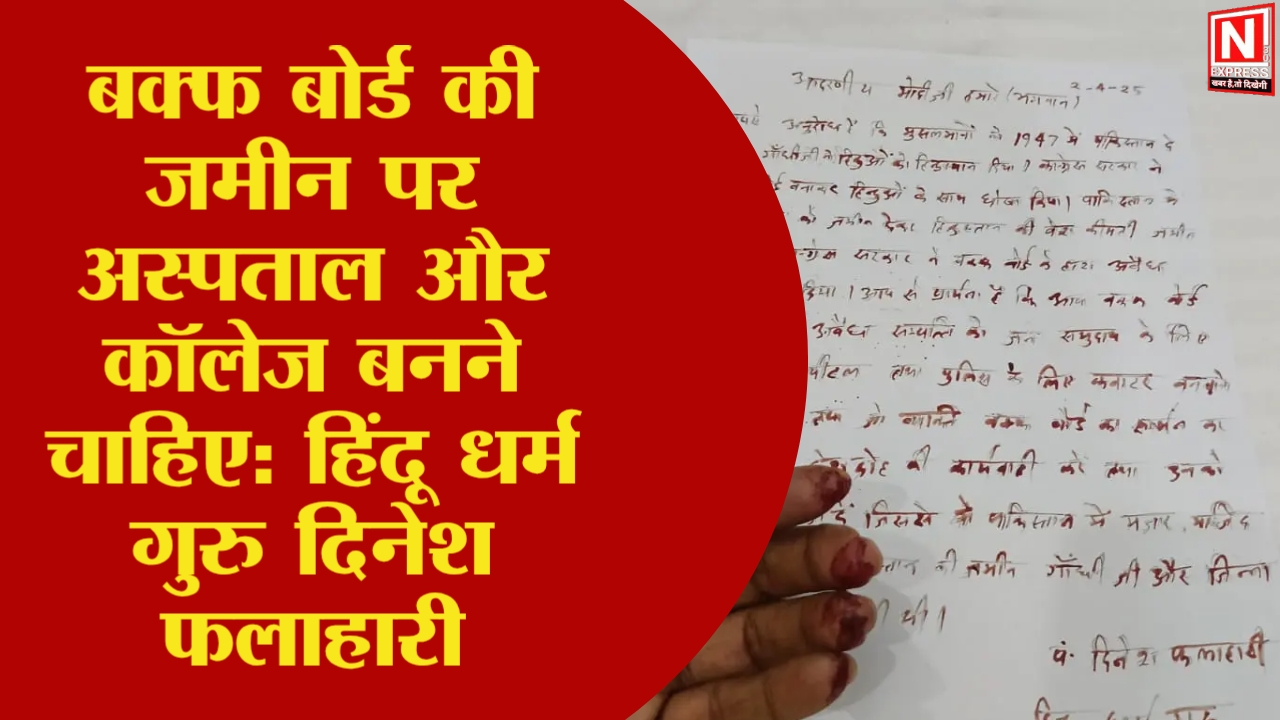 बक्फ बोर्ड की
जमीन पर
अस्पताल और
कॉलेज बनने
चाहिए: हिंदू धर्म
गुरु दिनेश
फलाहारी
N
EXPRESS
खबर है, तो दिखेगी
आदरणीय मोदी जी हमारे (भगवान)
2-4-25
अनुरोध है कि मुसलमानों को 1947 में पाकिस्तान दे
गाँधी जी ने हिन्दुओं को हिन्दुस्तान दिया। कांग्रेस सरकार ने
बनाकर हिन्दुओं के साथ धोखा किया। पाकिस्तान के
को जमीन देकर हिन्दुस्तान की बेस कीमती जमीन
सरकार ने वक्फ बोर्ड के द्वारा अवैध
दिया। आप से प्रार्थना है कि आप वक्फ बोर्ड
अवैध सम्पत्ति को जन समुदाय के लिए
तथा पुलिस के लिए क्वाटर बनवाये
तथा जो व्यक्ति वक्फ बोर्ड का समर्थन कर
की कार्यवाही करें तथा उनको
जिससे वे पाकिस्तान में मजार, मस्जिद
की जमीन गाँधी जी और जिन्ना
थी।
पं. दिनेश फलाहारी